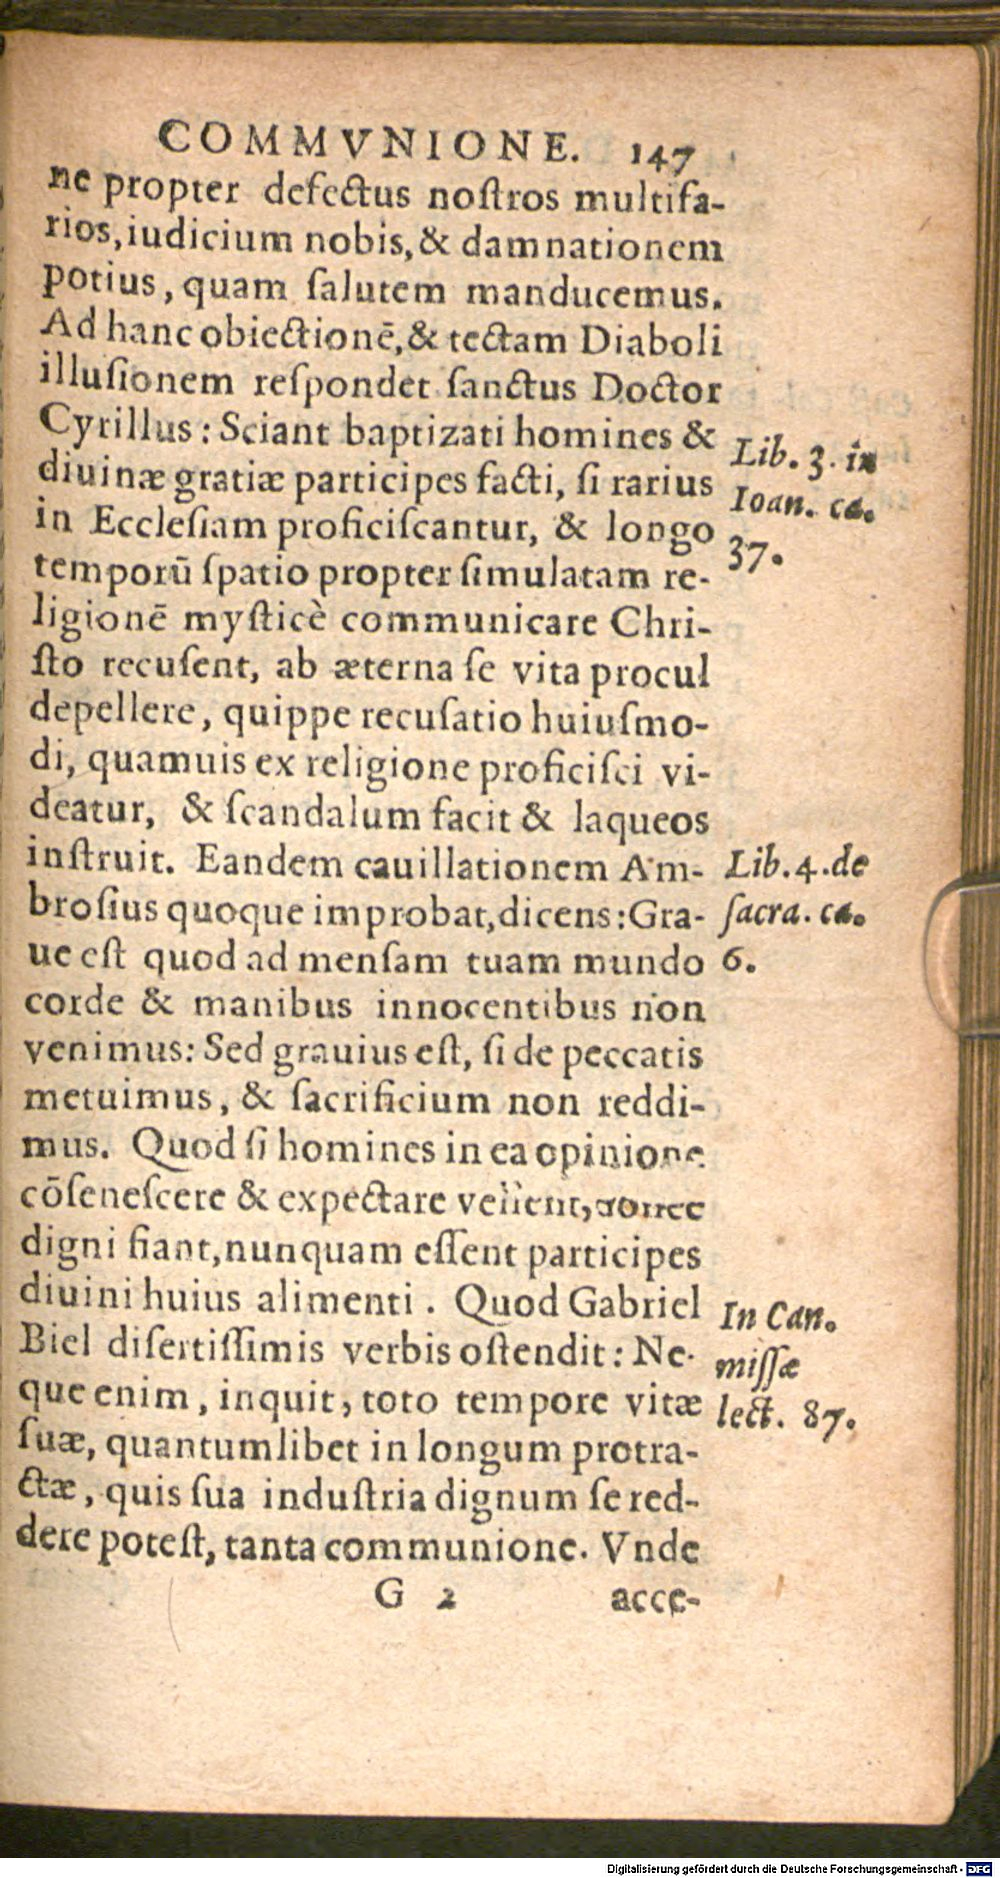 COMMVNIONE. 147
ne propter defectus noſtros multifa-
rios, iudicium nobis, & damnationem
potius, quam ſalutem manducemus.
Ad hanc obiectionē, & tectam Diaboli
illuſionem reſpondet ſanctus Doctor
Cyrillus: Sciant baptizati homines &
diuinæ gratiæ participes facti, ſi rarius
in Eccleſiam proficiſcantur, & longo
temporū ſpatio propter ſimulatam re-
ligionē myſticè communicare Chri-
ſto recuſent, ab æterna ſe vita procul
depellere, quippe recuſatio huiuſmo-
di, quamuis ex religione proficiſci vi-
deatur, & ſcandalum facit & laqueos
inſtruit. Eandem cauillationem Am-
broſius quoque improbat, dicens: Gra-
ue eſt quod ad menſam tuam mundo
corde & manibus innocentibus non
venimus: Sed grauius eſt, ſi de peccatis
metuimus, & ſacrificium non reddi-
mus. Quod ſi homines in ea opinione
cōſeneſcere & expectare vellent, donec
digni fiant, nunquam eſſent participes
diuini huius alimenti. Quod Gabriel
Biel diſertiſſimis verbis oſtendit: Ne-
que enim, inquit, toto tempore vitæ
ſuæ, quantumlibet in longum protra-
ctæ, quis ſua induſtria dignum ſe red-
dere poteſt, tanta communione. Vnde
G 2 acce-
Lib. 3. in
Ioan. ca.
37.
Lib. 4. de
ſacra. ca.
6.
In Can.
miſſæ
lect. 87.
Digitalisierung gefördert durch die Deutsche Forschungsgemeinschaft - DFG